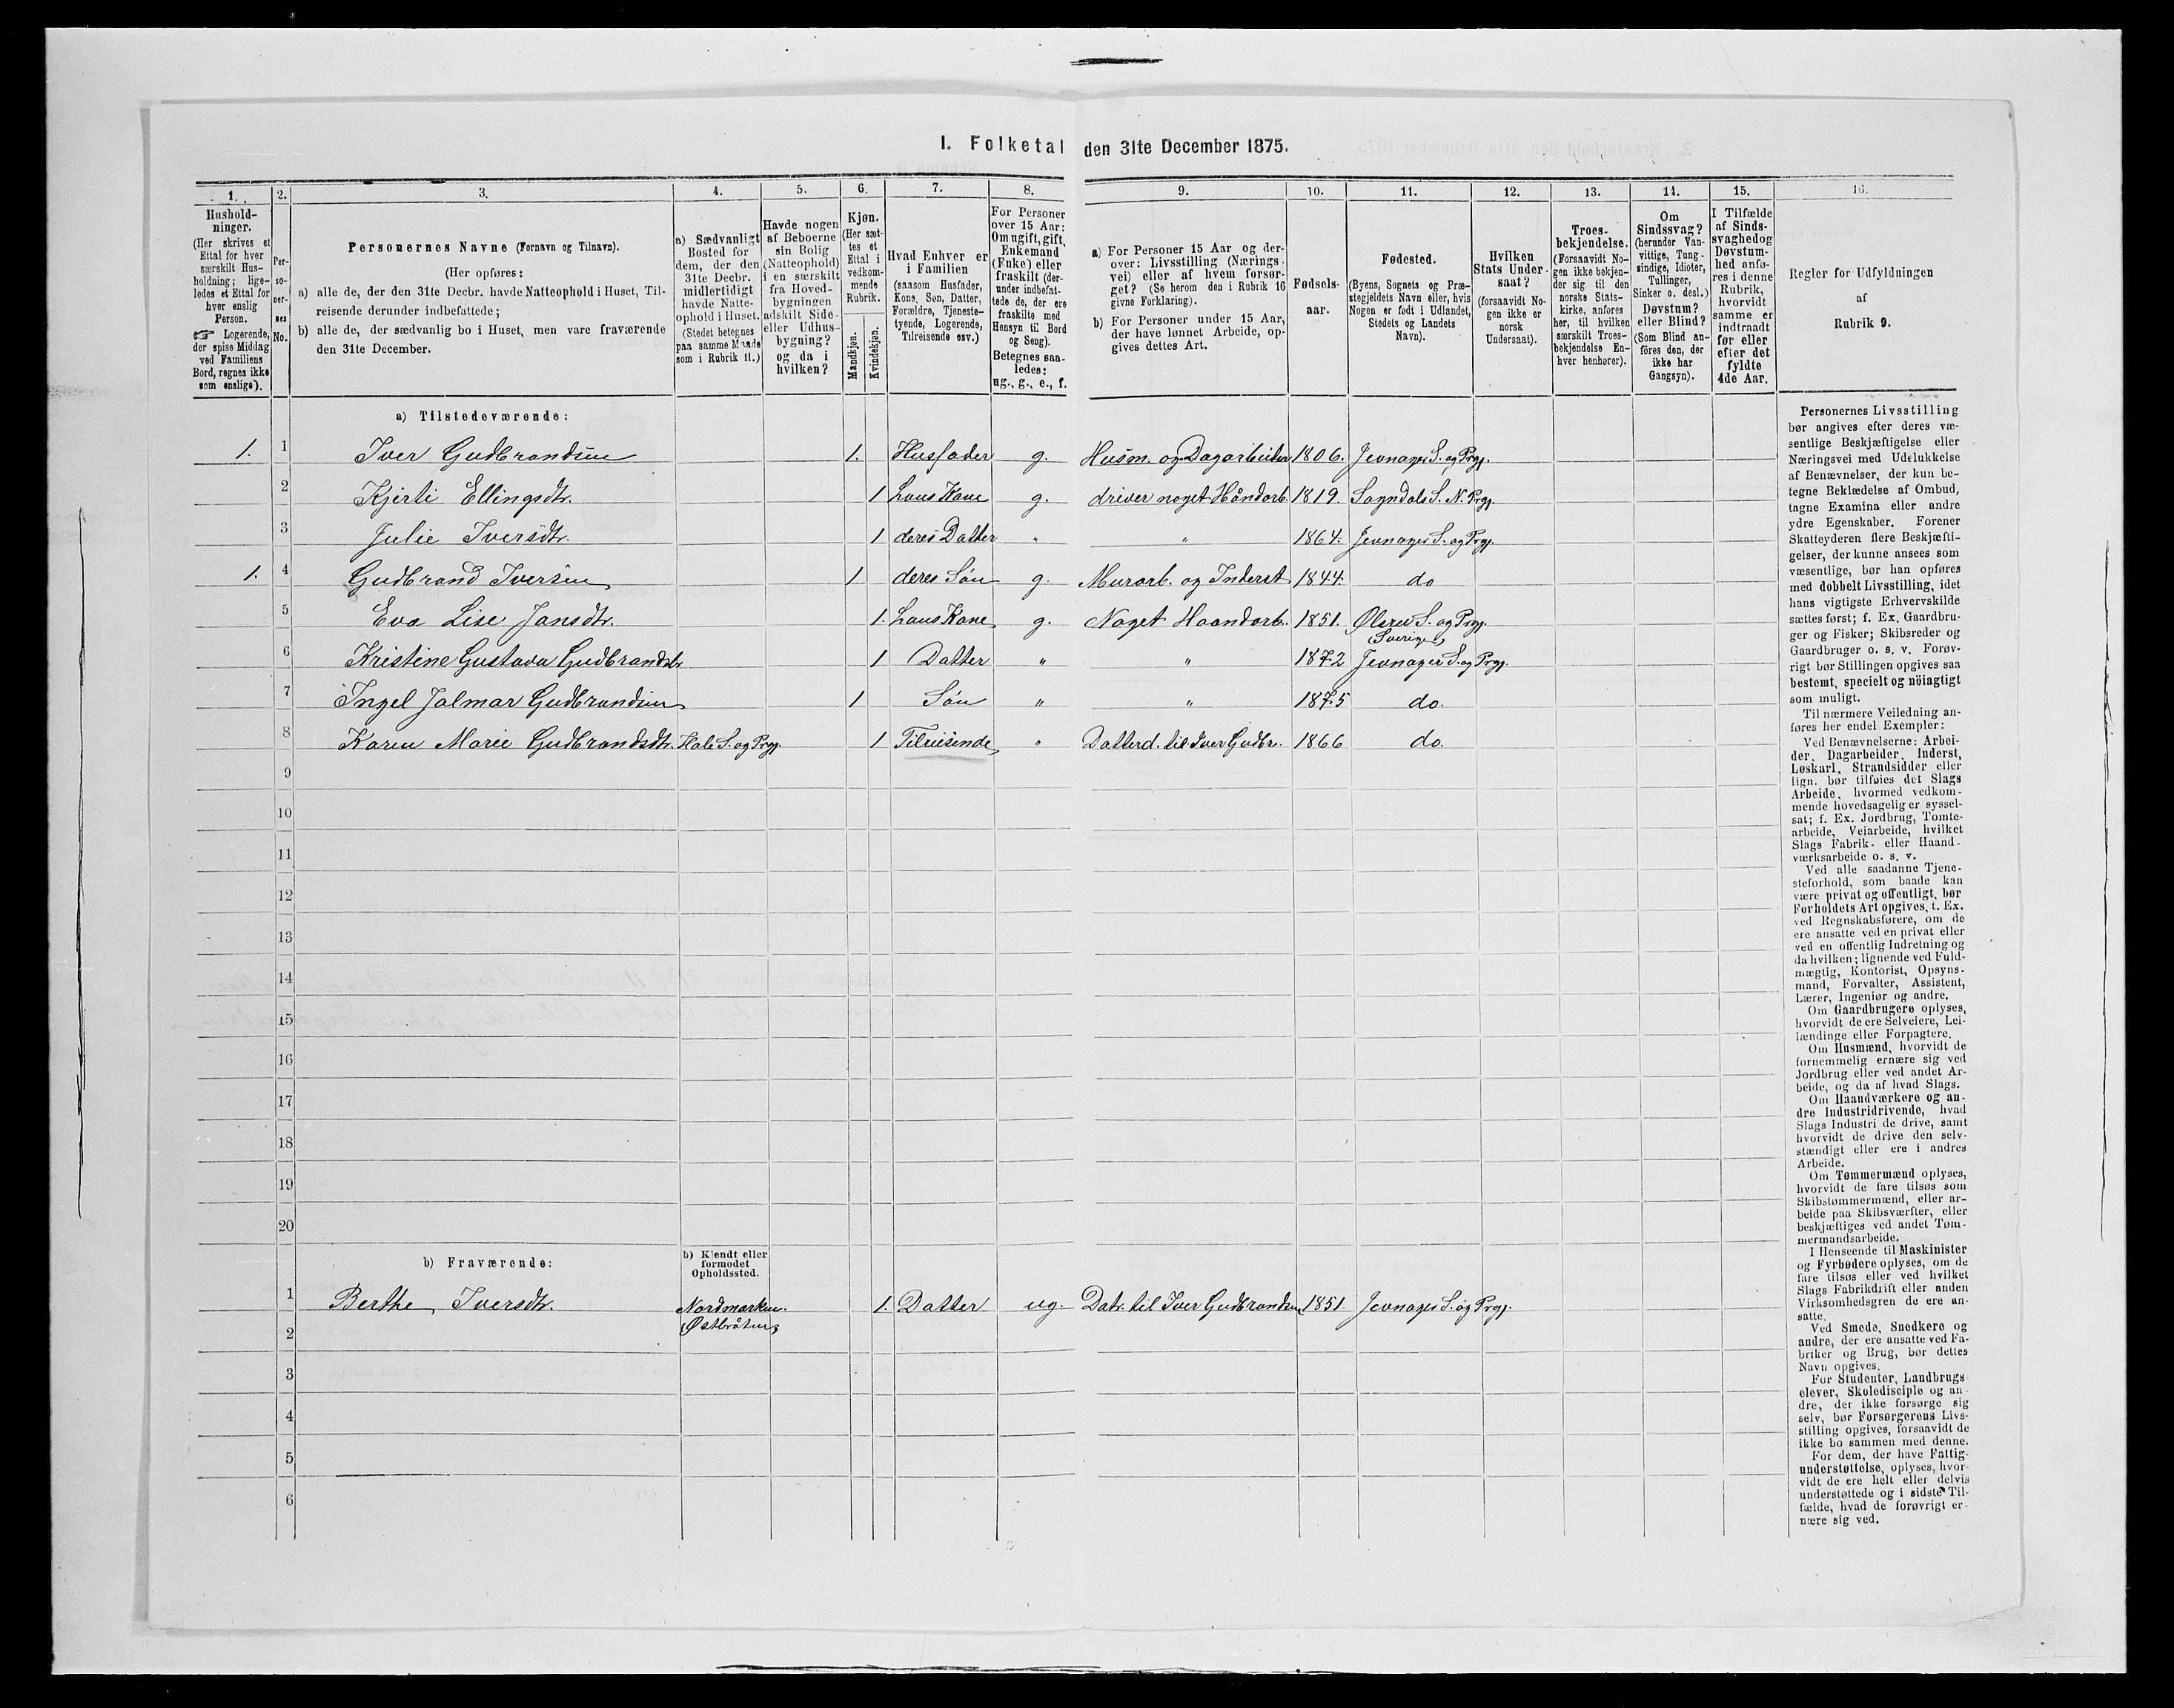 1. Folketal den 31te December 1875.
1. 2. 3. 4. 5. 6. 7. 8. 9. 10. 11. 12. 13. 14. 15. 16.
Hushold-
ninger.
(Her skrives et
Ettal for hver
særskilt Hus-
holdning; lige-
ledes et Ettal for
hver enslig
Person.
☞ Logerende,
der spise Middag
ved Familiens
Bord, regnes ikke
som enslige).
Per-
so-
ner-
nes
No.
Personernes Navne (Fornavn og Tilnavn).
(Her opføres:
a) alle de, der den 31te Decbr. havde Natteophold i Huset, Til-
reisende derunder indbefattede;
b) alle de, der sædvanlig bo i Huset, men vare fraværende
den 31te December.
a) Sædvanligt
Bosted for
dem, der den
31te Decbr.
midlertidigt
havde Natte-
ophold i Huset.
(Stedet betegnes
paa samme Maade
som i Rubrik 11.)
Havde nogen
af Beboerne
sin Bolig
(Natteophold)
i en særskilt
fra Hoved-
bygningen
adskilt Side-
eller Udhus-
bygning?
og da i
hvilken?
Kjøn.
(Her sæt-
tes et
Ettal i
vedkom-
mende
Rubrik.
Mandkjøn.
Kvindekjøn.
Hvad Enhver er
i Familien
(saasom Husfader,
Kone, Søn, Datter,
Forældre, Tjeneste-
tyende, Logerende,
Tilreisende osv.)
For Personer
over 15 Aar:
Om ugift, gift,
Enkemand
(Enke) eller
fraskilt (der-
under indbefat-
tede de, der ere
fraskilte med
Hensyn til Bord
og Seng).
Betegnes saa-
ledes:
ug., g., e., f.
a) For Personer 15 Aar og der-
over: Livsstilling (Nærings-
vei) eller af hvem forsør-
get? (Se herom den i Rubrik 16
givne Forklaring).
b) For Personer under 15 Aar,
der have lønnet Arbeide, op-
gives dettes Art.
Fødsels-
aar.
Fødested.
(Byens, Sognets og Præ-
stegjeldets Navn eller, hvis
Nogen er født i Udlandet,
Stedets og Landets
Navn).
Hvilken
Stats Under-
saat?
(forsaavidt No-
gen ikke er
norsk
Undersaat).
Troes-
bekjendelse.
(Forsaavidt No-
gen ikke bekjen-
der sig til den
norske Stats-
kirke, anføres
her, til hvilken
særskilt Troes-
bekjendelse En-
hver henhører).
Om
Sindssvag?
(herunder Van-
vittige, Tung-
sindige, Idioter,
Tullinger,
Sinker o. desl.)
Døvstum?
eller Blind?
(Som Blind an-
föres den, der
ikke har
Gangsyn).
I Tilfælde
af Sinds-
svaghed og
Døvstum-
hed anfø-
res i denne
Rubrik,
hvorvidt
samme er
indtraadt
før eller
efter det
fyldte
4de Aar.
Regler for Udfyldningen
af
Rubrik 9.
a) Tilstedeværende:
1. 1 Iver Gudbrandsen 1. Husfader g. Husm. og Dagarbeider 1806. Jevnager S. og Prgj.
2 Kjersti Ellingsdtr. 1 hans Kone g. driver noget Håndarb. 1819. Sogndals S. N. Prgj.
3 Julie Iversdtr. 1 deres Datter " " 1864. Jevnager S. og Prgj.
1. 4 Gudbrand Iversen 1 deres Søn g. Murarb. og Inderst 1844. do
5 Eva Lise Jansdtr. 1. hans Kone g. Noget Haandarb. 1851. Ølserud S. og Prgj.
(Sverige)
6 Kristine Gustava Gudbrandsdtr. 1 Datter " " 1872 Jevnager S. og Prgj.
7 Ingel Jalmar Gudbrandsen 1 Søn " " 1875 do.
8 Karen Marie Gudbrandsdtr. Hole S. og Prgj. 1 Tilreisende " Datterd. til Iver Gudbr. 1866 do.
9
10
11
12
13
14
15
16
17
18
19
20
b) Fraværende:
b) Kjendt eller
formodet
Opholdssted.
1 Berthe Iversdtr. Nordmarken. 1. Datter ug. Datr. til Iver Gudbrandsen 1851. Jevnager S. og Prgj.
2 (Østbråten)
3
4
5
6
Personernes Livsstilling
bør angives efter deres væ-
sentlige Beskjæftigelse eller
Næringsvei med Udelukkelse
af Benævnelser, der kun be-
tegne Beklædelse af Ombud,
tagne Examina eller andre
ydre Egenskaber. Forener
Skatteyderen flere Beskjæfti-
gelser, der kunne ansees som
væsentlige, bør han opføres
med dobbelt Livsstilling, idet
hans vigtigste Erhvervskilde
sættes først; f. Ex. Gaardbru-
ger og Fisker; Skibsreder og
Gaardbruger o. s. v. Forøv-
rigt bør Stillingen opgives saa
bestemt, specielt og nöiagtigt
som muligt.
Til nærmere Veiledning an-
føres her endel Exempler:
Ved Benævnelserne: Arbei-
der, Dagarbeider, Inderst,
Løskarl, Strandsidder eller
lign. bør tilføies det Slags
Arbeide, hvormed vedkom-
mende hovedsagelig er syssel-
sat; f. Ex. Jordbrug, Tomte-
arbeide, Veiarbeide, hvilket
Slags Fabrik- eller Haand-
værksarbeide o. s. v.
Ved alle saadanne Tjene-
steforhold, som baade kan
være privat og offentligt, bør
Forholdets Art opgives, t. Ex.
ved Regnskabsførere, om de
ere ansatte ved en privat eller
ved en offentlig Indretning og
da hvilken; lignende ved Fuld-
mægtig, Kontorist, Opsyns-
mand, Forvalter, Assistent,
Lærer, Ingeniør og andre.
Om Gaardbrugere oplyses,
hvorvidt de ere Selveiere, Lei-
lændinge eller Forpagtere.
Om Husmænd, hvorvidt de
fornemmelig ernære sig ved
Jordbrug eller ved andet Ar-
beide, og da af hvad Slags.
Om Haandværkere og an-
dre Industridrivende, hvad
Slags Industri de drive, samt
hvorvidt de drive den selv-
stændigt eller ere i andres
Arbeide.
Om Tømmermænd oplyses,
hvorvidt de fare tilsøs som
Skibstømmermænd, eller ar-
beide paa Skibsværfter, eller
beskjæftiges ved andet Tøm-
mermandsarbeide.
I Henseende til Maskinister
og Fyrbødere oplyses, om de
fare tilsøs eller ved hvilket
Slags Fabrikdrift eller anden
Virksomhedsgren de ere an-
satte.
Ved Smede, Snedkere og
andre, der ere ansatte ved Fa-
briker og Brug, bør dettes
Navn opgives.
For Studenter, Landbrugs-
elever, Skoledisciple og an-
dre, der ikke forsørge sig
selv, bør Forsørgerens Livs-
stilling opgives, forsaavidt de
ikke bo sammen med denne.
For dem, der have Fattig-
understøttelse, oplyses, hvor-
vidt de ere helt eller delvis
understøttede og i sidste Til-
fælde, hvad de forøvrigt er-
nære sig ved.